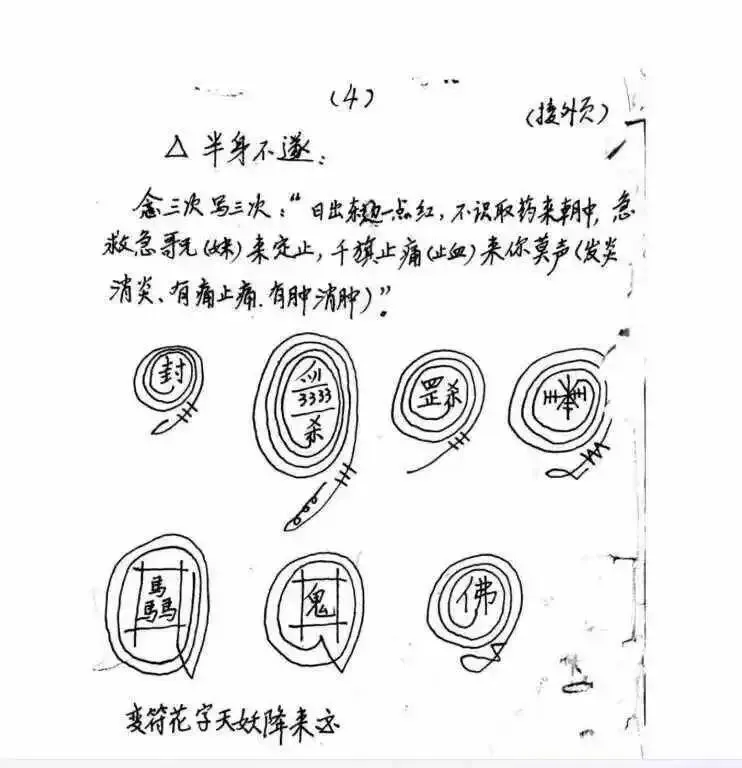 (4)
(接外页)
△ 半身不遂:
念三次写三次:“日出东边一点红,不识取药来朝中,急
救急哥兄(妹)来定止,千旗止痛(止血)来你莫声(发炎
消炎、有痛止痛.有肿消肿)”。
封
3333
杀
罡杀
馬
馬馬
鬼
佛
变符花字天妖降来